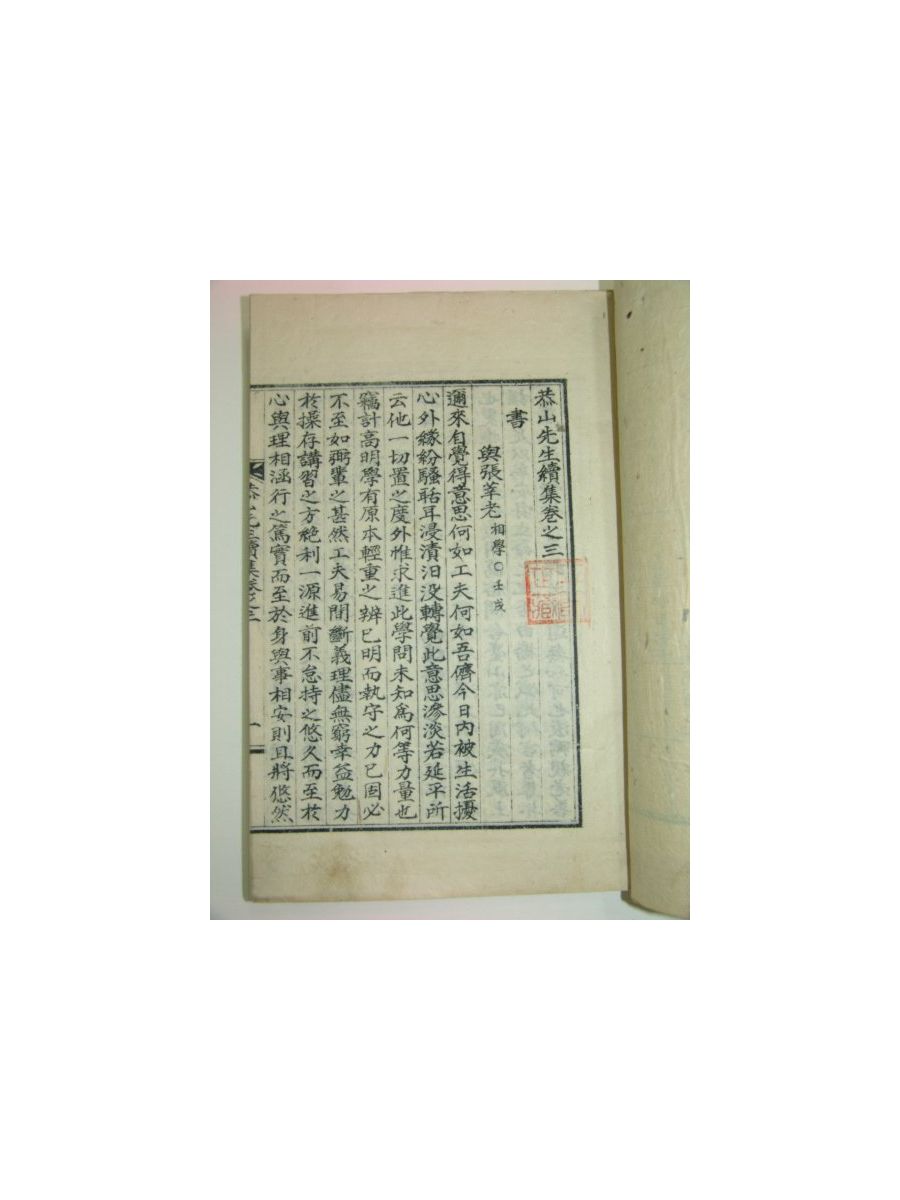 恭山先生續集卷之三
書
與張莘老 相學○壬戌
邇來自覺得意思何如工夫何如吾儕今日內被生活擾
心外緣紛騷聒耳浸漬汨沒轉覺此意思滲淡若延平所
云他一切置之度外惟求進此學問未知爲何等力量也
竊計高明學有原本輕重之辨已明而執守之力已固必
不至如弼輩之甚然工夫易間斷義理儘無窮幸益勉力
於操存講習之方絶利一源進前不怠持之悠久而至於
心與理相涵行之篤實而至於身與事相安則且將悠然
恭山先生續集卷之三
一